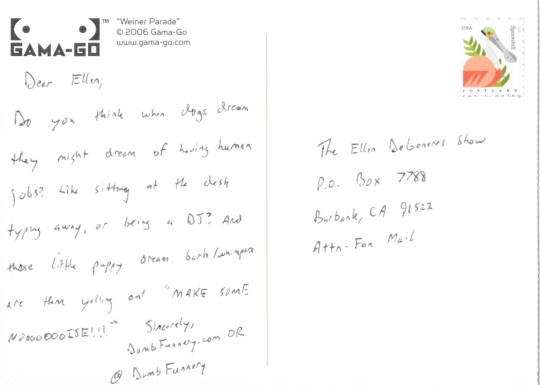 GAMA-GO™
"Weiner Parade"
© 2006 Gama-Go
www.gama-go.com
Dear Ellen,
Do you think when dogs dream
they might dream of having human
jobs? Like sitting at the desk
typing away, or being a DJ? And
those little puppy dream bark/whimpers
are them yelling out "MAKE SOME
NOOOOOOOISE!!!"
Sincerely,
DumbFunnery.com OR
@ DumbFunnery
USA
Spoonbill
POSTCARD
The Ellen DeGeneres Show
P.O. Box 7788
Burbank, CA 91522
Attn: Fan Mail